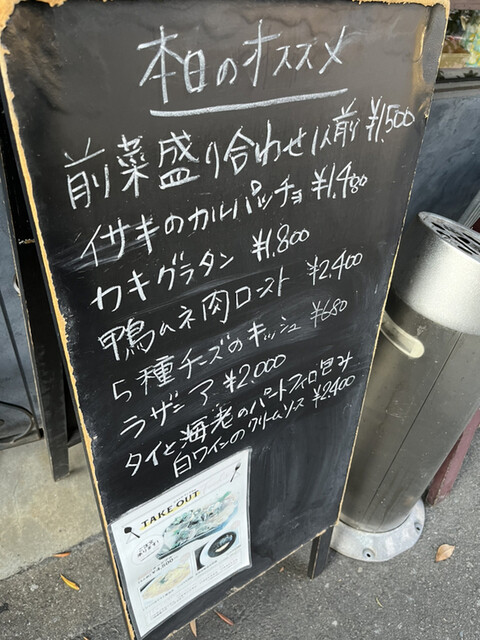 本日のオススメ
前菜盛り合わせ1人前 ¥1,500
イサキのカルパッチョ ¥1,480
カキグラタン ¥1,800
鴨ムネ肉ロースト ¥2,400
5種チーズのキッシュ ¥680
ラザニア ¥2,000
タイと海老のパートフィロ包み
白ワインのクリームソース ¥2,400
TAKE OUT